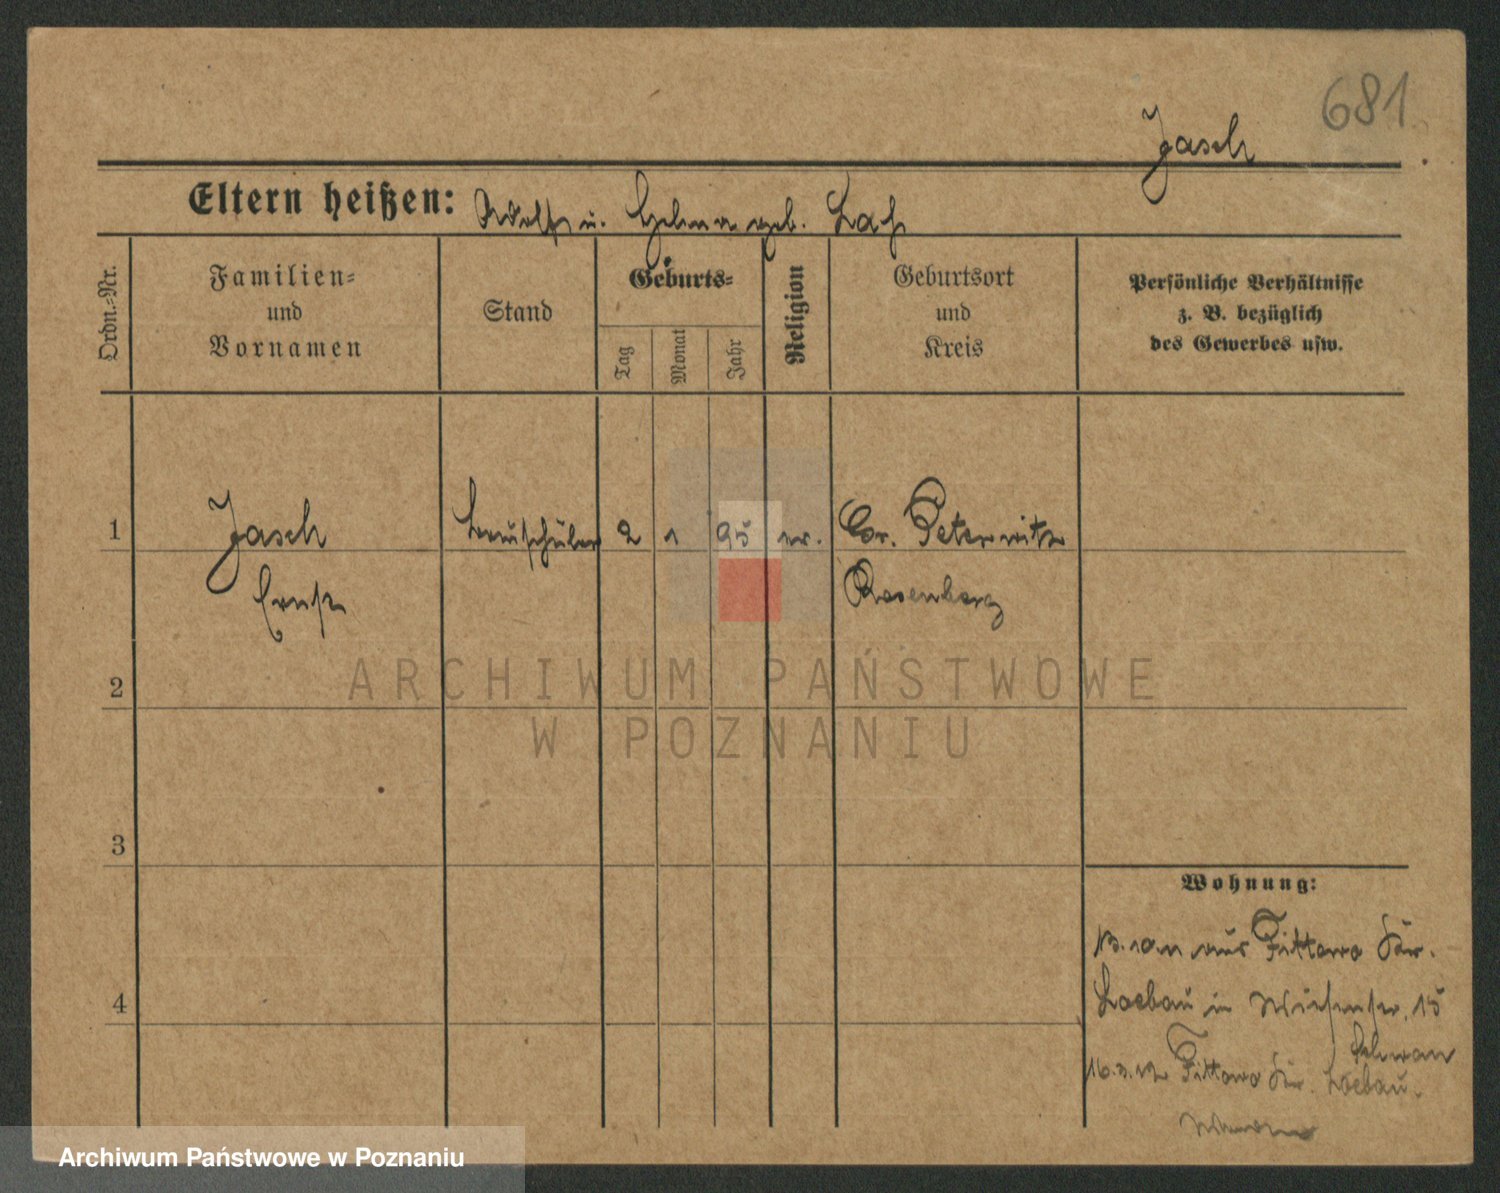 681
Jasch
Eltern heißen: Adolf u. Helma geb. Laß
Ordn.-Nr.
Familien-
und
Vornamen
Stand
Geburts-
Tag
Monat
Jahr
Religion
Geburtsort
und
Kreis
Persönliche Verhältnisse
z. B. bezüglich
des Gewerbes usw.
1
Jasch
Ernst
Bauschüler
2
1
95
ev.
Gr. Peterwitz
Rosenberg
2
3
4
Wohnung:
13.10.11 aus Fittowo Kr.
Loebau in Wiesenstr. 15
16.3.12 Fittowo Kr. Loebau.
ARCHIWUM PAŃSTWOWE
W POZNANIU
Archiwum Państwowe w Poznaniu